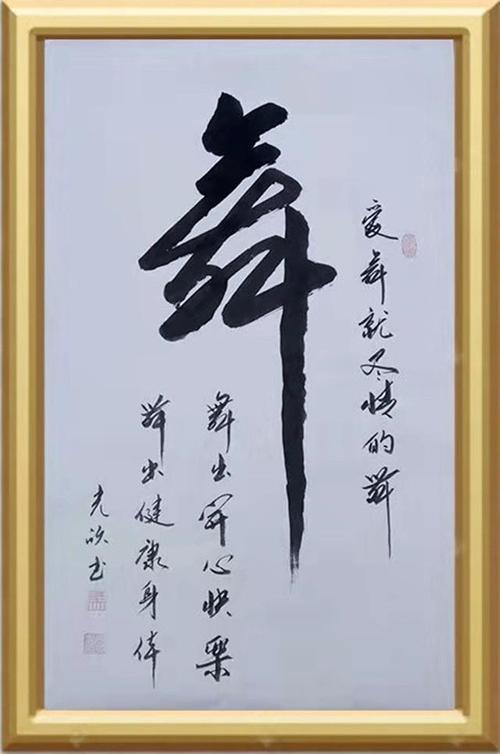 舞
爱舞就尽情的舞
舞出开心快樂
舞出健康身体
光欣书